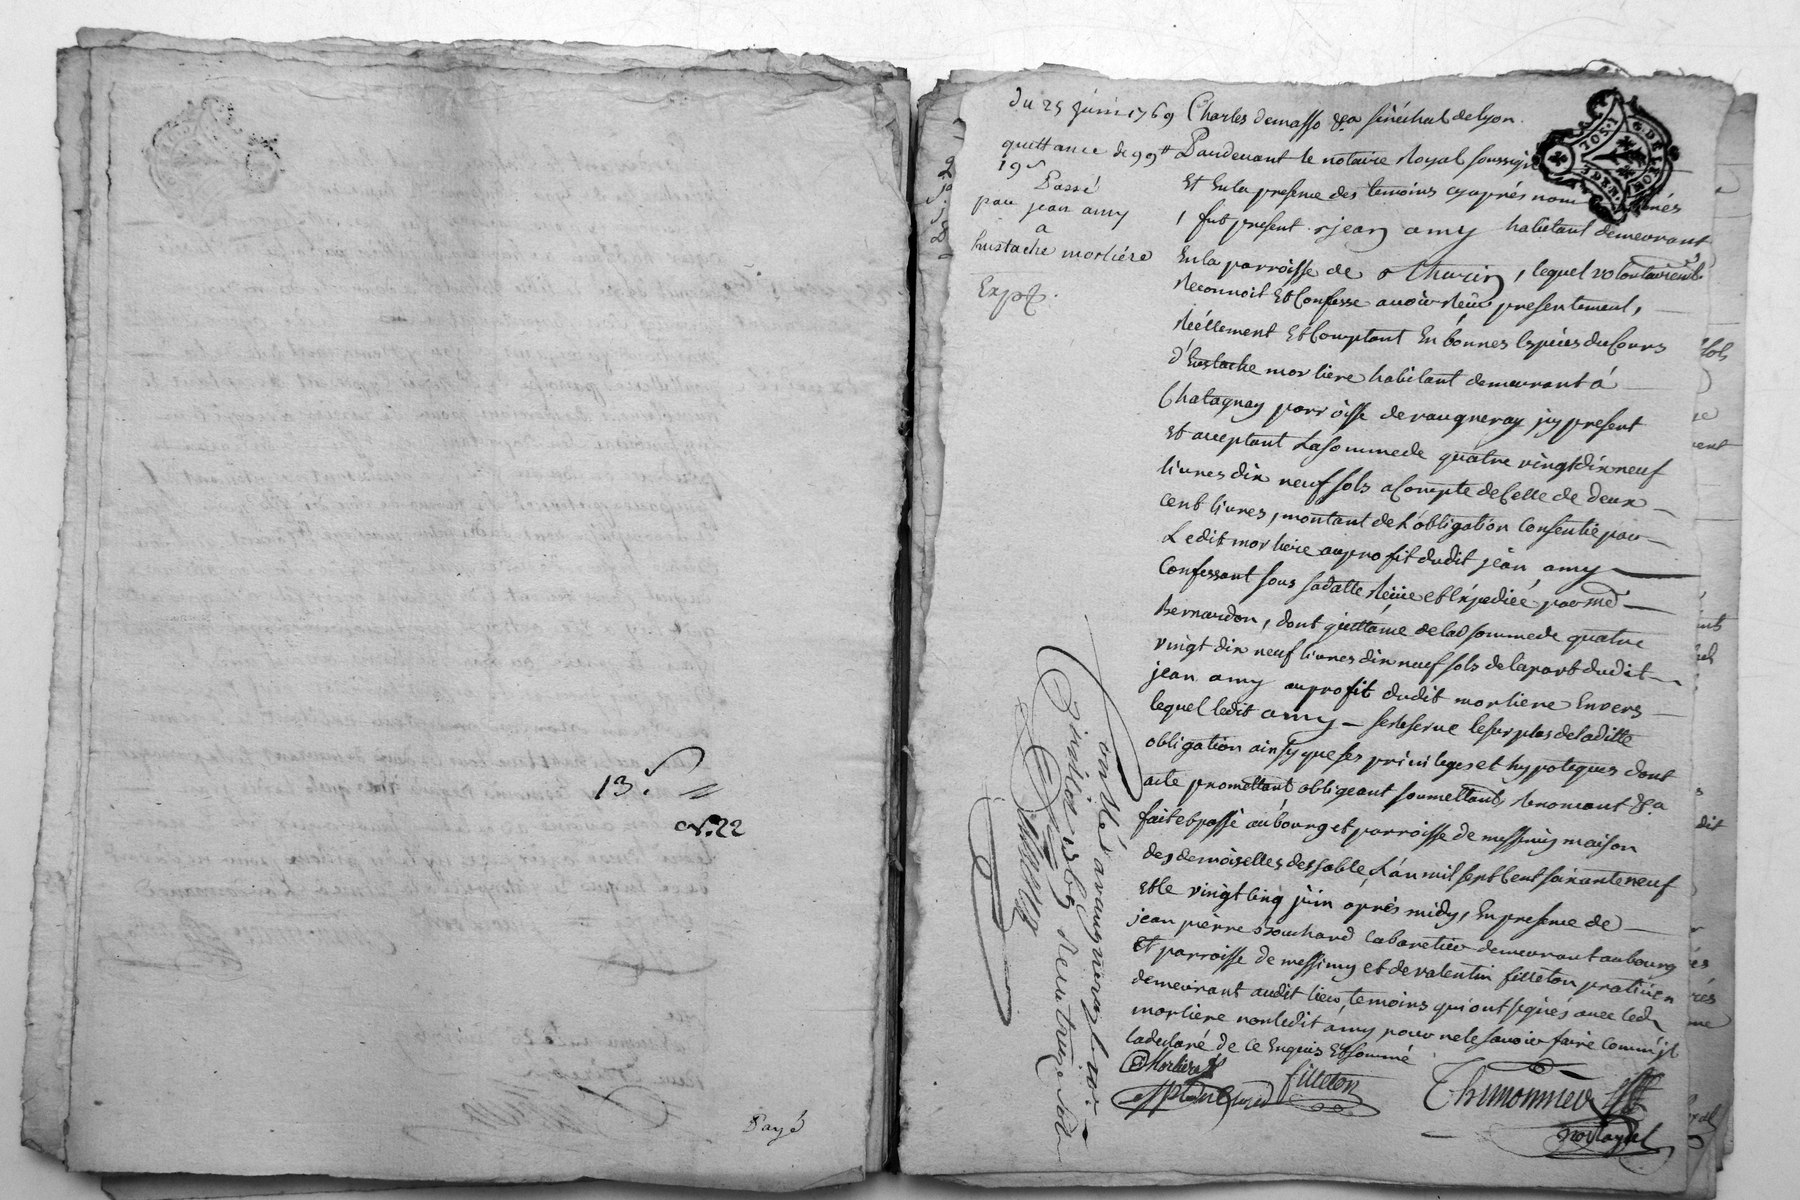 13.s
N.22
Payé
du 25 juin 1769
quittance de 99tt
19s
Passé
par jean amy
a
Eustache morliére
Expé.
Charles demasso &a sénéchal de lyon.
Pardevant le notaire Royal soussigné
Et En la presence des temoins cy aprés nommés
fut present jean amy habitant demeurant
En la parroisse de thurin, lequel volontairemt.
Reconnoit Et Confesse avoir Reçû presentement,
Réellement Et Comptant En bonnes Espéces du Cours
d'Eustache morliere habitant demeurant á
Chatagnay parroisse de vaugneray icy present
Et acceptant La Somme de quatre vingt dix neuf
livres dix neuf sols a Compte de Celle de deux
cent livres, montant de L'obligation Consentie par
Ledit morliere au profit dudit jean amy
Confessant sous sa datte Reçüe et Expediée par me
Bernardon, dont quittance de lad somme de quatre
vingt dix neuf livres dix neuf sols de la part dudit
jean amy au profit dudit morliere Envers
lequel ledit amy se Reserve le surplus de laditte
obligation ainsy que ses privileges et hypoteques dont
acte promettant obligeant soumettant, Renonçant &a.
fait et passé au bourg et parroisse de messimy maison
des demoiselles dessable, L'an mil sept Cent soixante neuf
et le vingt Cinq juin aprés midy, En presence de
jean pierre Bouchard Cabaretier demeurant au bourg
et parroisse de messimy et de valentin filleton praticien
demeurant audit lieu, temoins qui ont signés avec led
morliere non ledit amy pour ne le savoir faire comm'jl
la declaré de Ce Enquis Et sommé
E Morliere
filleton
Thimonnier
no Royal
Controllé a vaugneray le
juillet 1769 Reçu treize sols